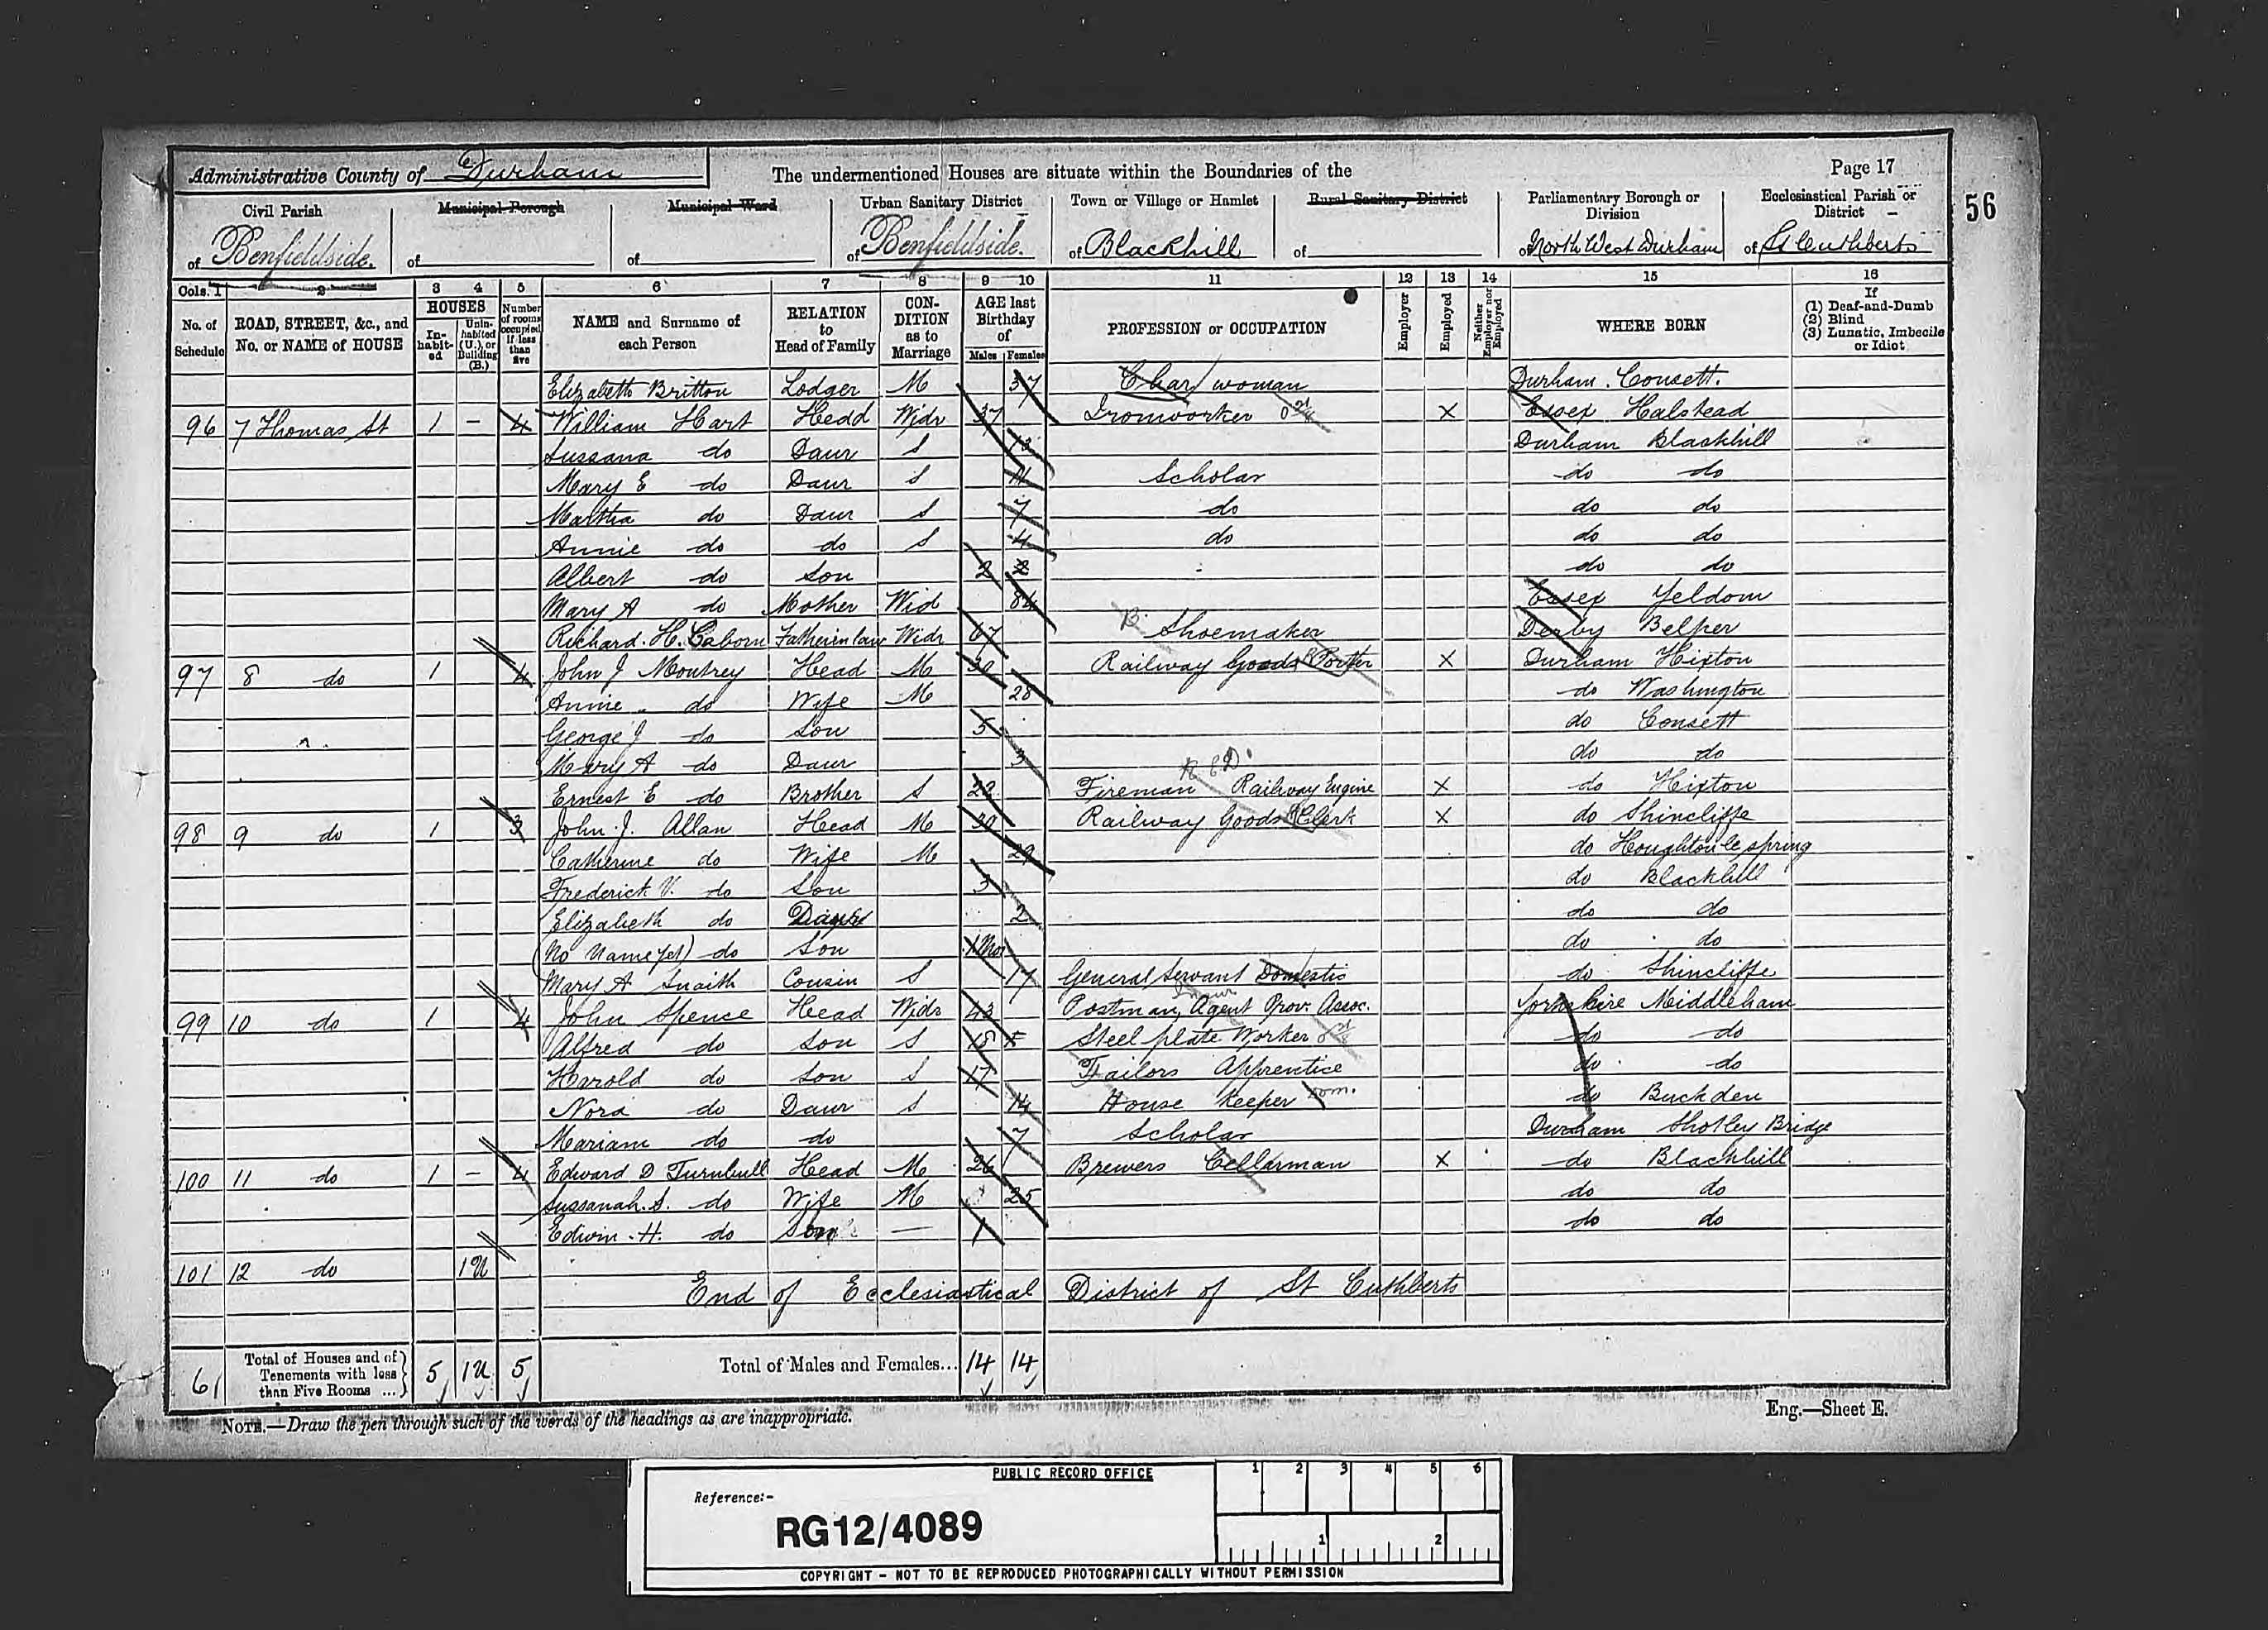 Administrative County of Durham The undermentioned Houses are situate within the Boundaries of the Page 17
56
Civil Parish of Benfieldside. Municipal Borough of Municipal Ward of Urban Sanitary District of Benfieldside. Town or Village or Hamlet of Blackhill Rural Sanitary District of Parliamentary Borough or Division of North West Durham Ecclesiastical Parish or District of St Cuthberts
Cols. 1 2 3 4 5 6 7 8 9 10 11 12 13 14 15 16
No. of Schedule ROAD, STREET, &c., and No. or NAME of HOUSE HOUSES Inhabited Uninhabited (U.), or Building (B.) Number of rooms occupied if less than five NAME and Surname of each Person RELATION to Head of Family CONDITION as to Marriage AGE last Birthday of Males Females PROFESSION or OCCUPATION Employer Employed Neither Employer nor Employed WHERE BORN If (1) Deaf-and-Dumb (2) Blind (3) Lunatic, Imbecile or Idiot
Elizabeth Britton Lodger M 37 Char woman Durham. Consett.
96 7 Thomas St 1 – 4 William Hart Hedd Widr 37 Ironworker X Essex Halstead
Sussana do Daur S 13 Durham Blackhill
Mary E do Daur S 11 Scholar do do
Martha do Daur S 7 do do do
Annie do do S 4 do do do
Albert do Son 2 do do
Mary A do Mother Wid 84 Essex Yeldom
Richard. H. Caborn Father in law Widr 67 Shoemaker Derby Belper
97 8 do 1 4 John J Moutrey Head M 30 Railway Goods Porter X Durham Hixton
Annie do Wife M 28 do Washington
George J do Son 5 do Consett
Mary A do Daur 3 do do
Ernest E do Brother S 22 Fireman Railway Engine X do Hixton
98 9 do 1 3 John. J. Allan Head M 30 Railway Goods Clerk X do Shincliffe
Catherine do Wife M 29 do Houghton le spring
Frederick V. do Son 3 do Blackhill
Elizabeth do Daur 2 do do
(No Name yet) do Son 1 Mo do do
Mary A Snaith Cousin S 17 General Servant Domestic do Shincliffe
99 10 do 1 4 John Spence Head Widr 43 Postman, Agent Prov. Assoc. Yorkshire Middleham
Alfred do Son S 18 Steel plate Worker do do
Harold do Son S 17 Tailors Apprentice do do
Nora do Daur S 14 House Keeper Dom. do Buckden
Mariam do do 7 Scholar Durham Shotley Bridge
100 11 do 1 – 4 Edward D Turnbull Head M 26 Brewers Cellarman X do Blackhill
Sussanah. S. do Wife M 25 do do
Edwin. H. do Son — 1 do do
101 12 do 1U
End of Ecclesiastical District of St Cuthberts
6 Total of Houses and of Tenements with less than Five Rooms ... 5 1U 5 Total of Males and Females... 14 14
NOTE.—Draw the pen through such of the words of the headings as are inappropriate. Eng.—Sheet E.
PUBLIC RECORD OFFICE 1 2 3 4 5 6
Reference:-
RG12/4089 1 2
COPYRIGHT - NOT TO BE REPRODUCED PHOTOGRAPHICALLY WITHOUT PERMISSION